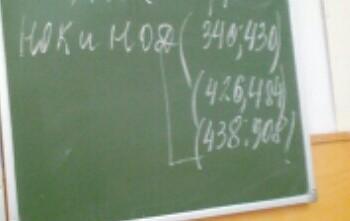 НОК и НОД (340; 430)
(426, 484)
(438: 908)